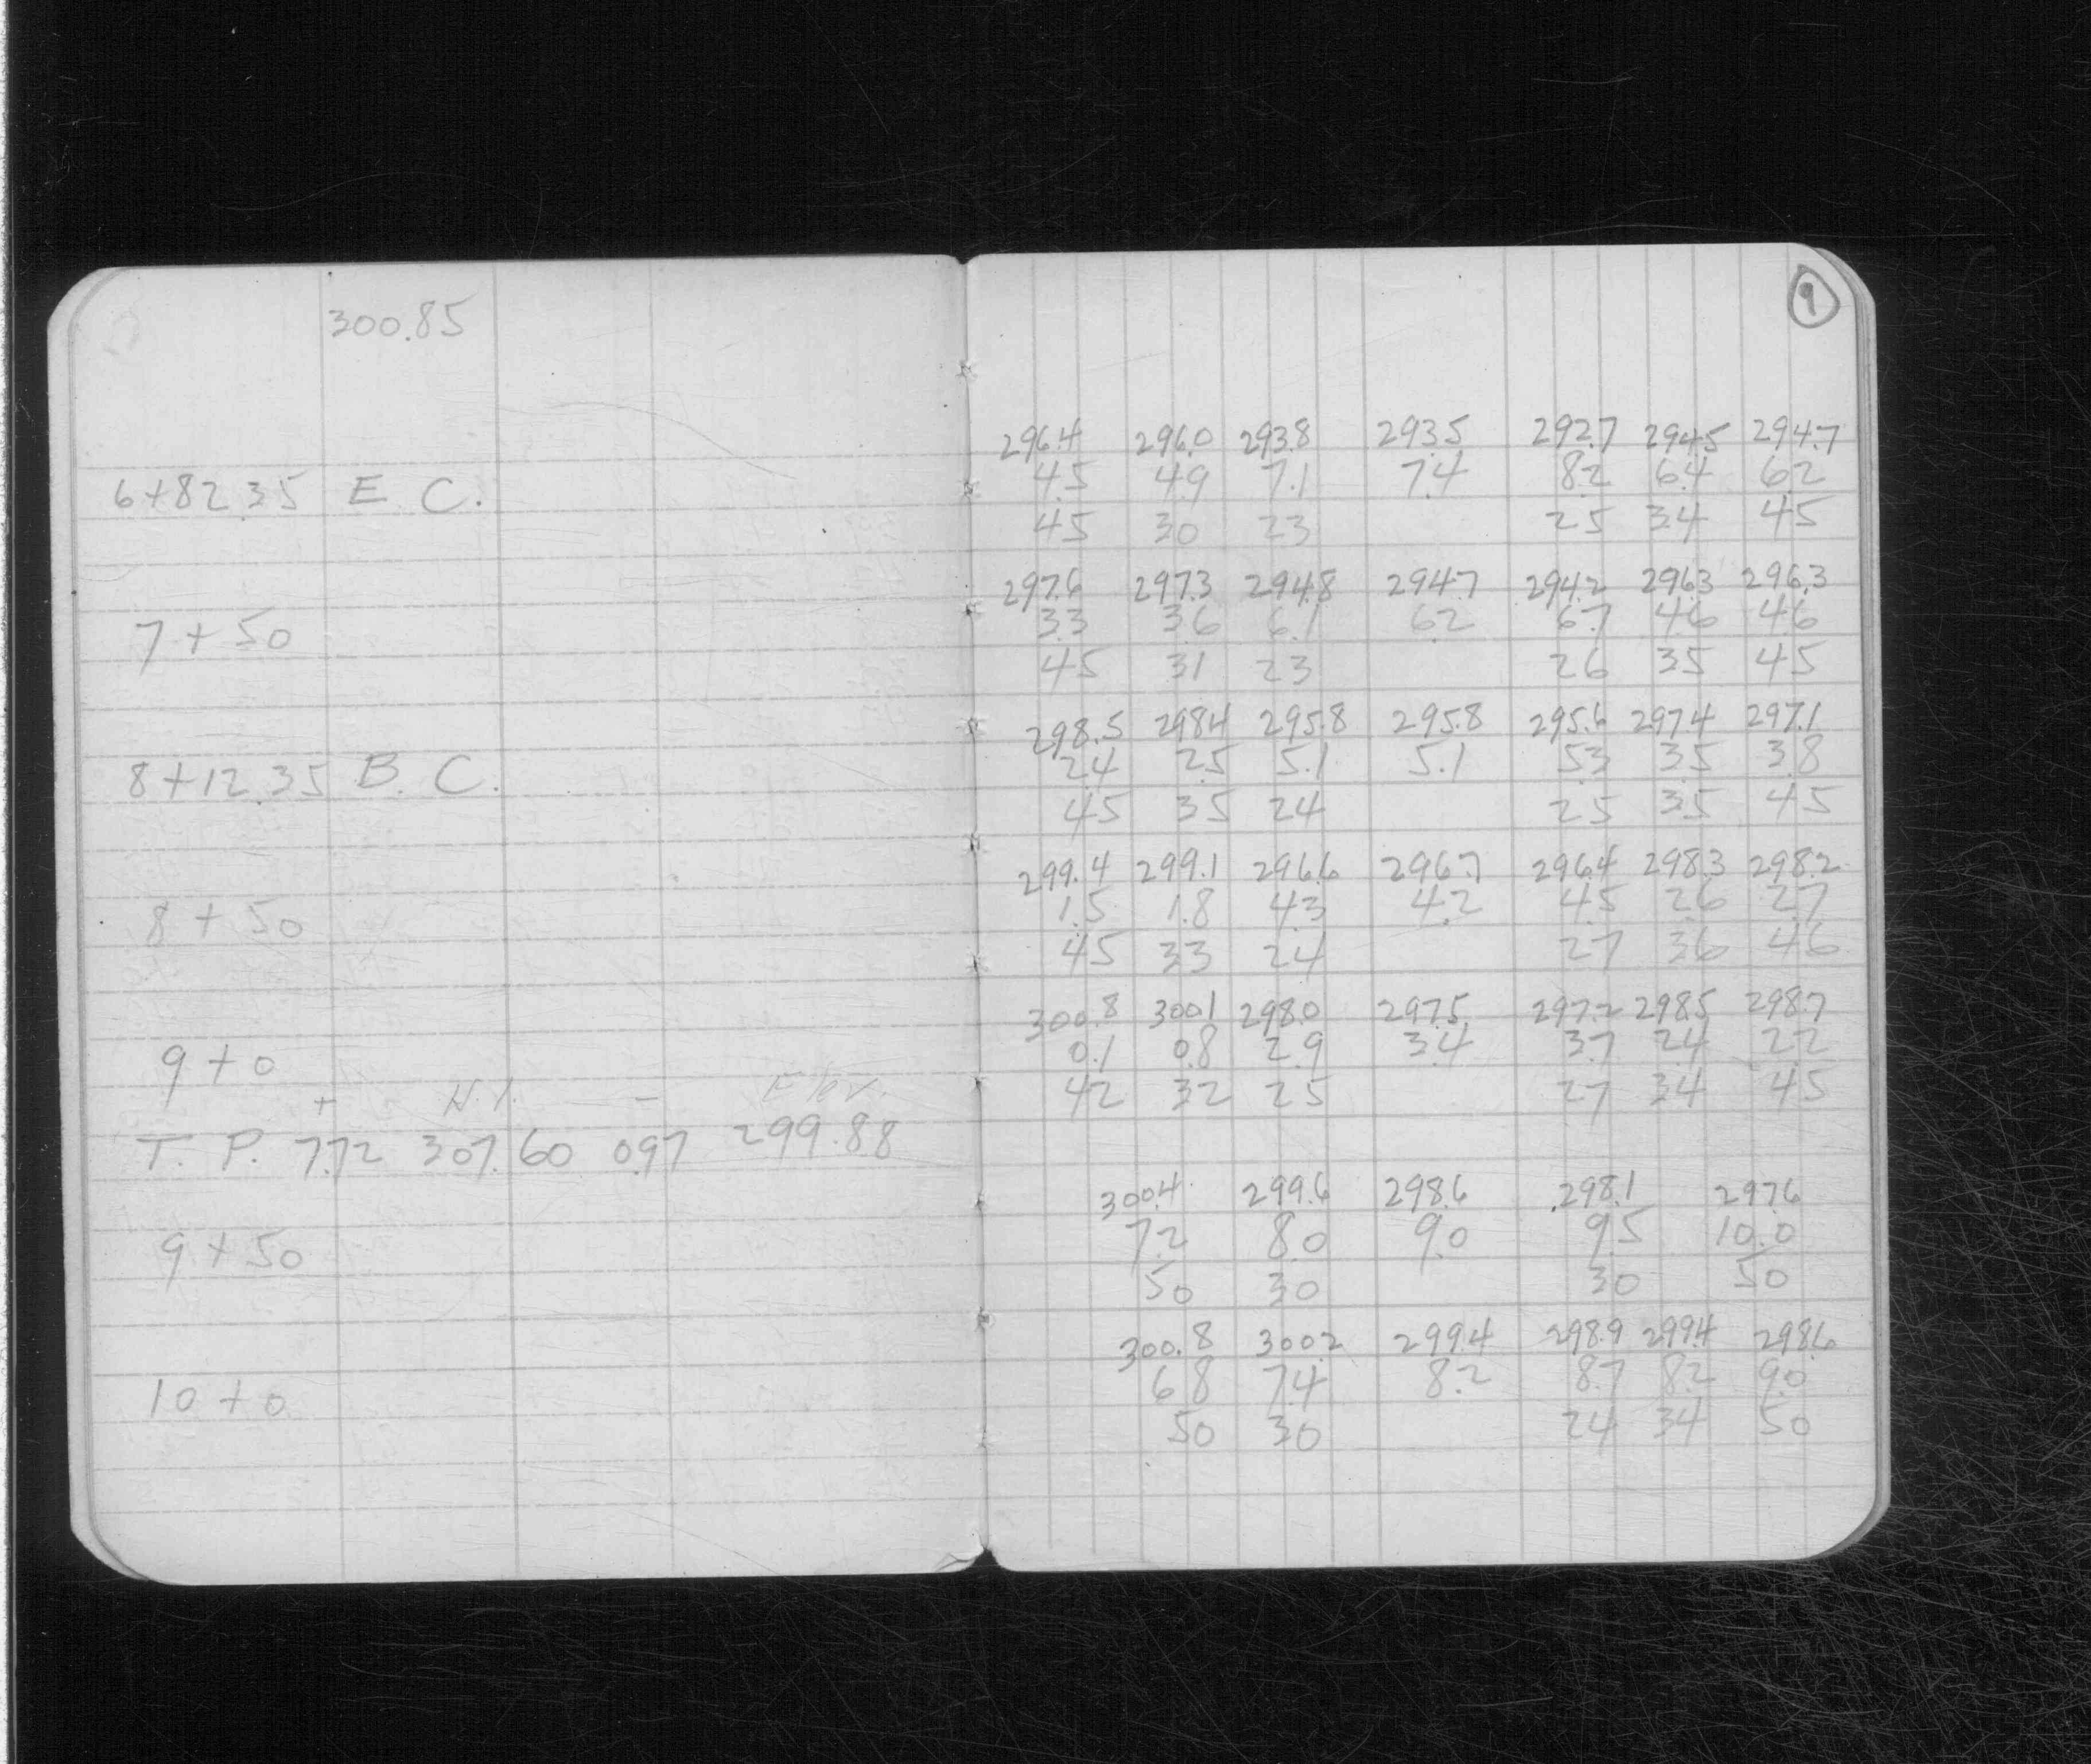 300.85
9
296.4 296.0 293.8 293.5 292.7 294.5 294.7
6+82.35 E. C. 4.5 4.9 7.1 7.4 8.2 6.4 6.2
45 30 23 25 34 45
297.6 297.3 294.8 294.7 294.2 296.3 296.3
7+50 3.3 3.6 6.1 6.2 6.7 4.6 4.6
45 31 23 26 35 45
298.5 298.4 295.8 295.8 295.6 297.4 297.1
8+12.35 B. C. 2.4 2.5 5.1 5.1 5.3 3.5 3.8
45 35 24 25 35 45
299.4 299.1 296.6 296.7 296.4 298.3 298.2
8+50 1.5 1.8 4.3 4.2 4.5 2.6 2.7
45 33 24 27 36 46
300.8 300.1 298.0 297.5 297.2 298.5 298.7
9+0 0.1 0.8 2.9 3.4 3.7 2.4 2.2
42 32 25 27 34 45
+ H.I. - Elev.
T. P. 7.72 307.60 0.97 299.88
300.4 299.6 298.6 298.1 297.6
9+50 7.2 8.0 9.0 9.5 10.0
50 30 30 50
300.8 300.2 299.4 298.9 299.4 298.6
10+0 6.8 7.4 8.2 8.7 8.2 9.0
50 30 24 34 50